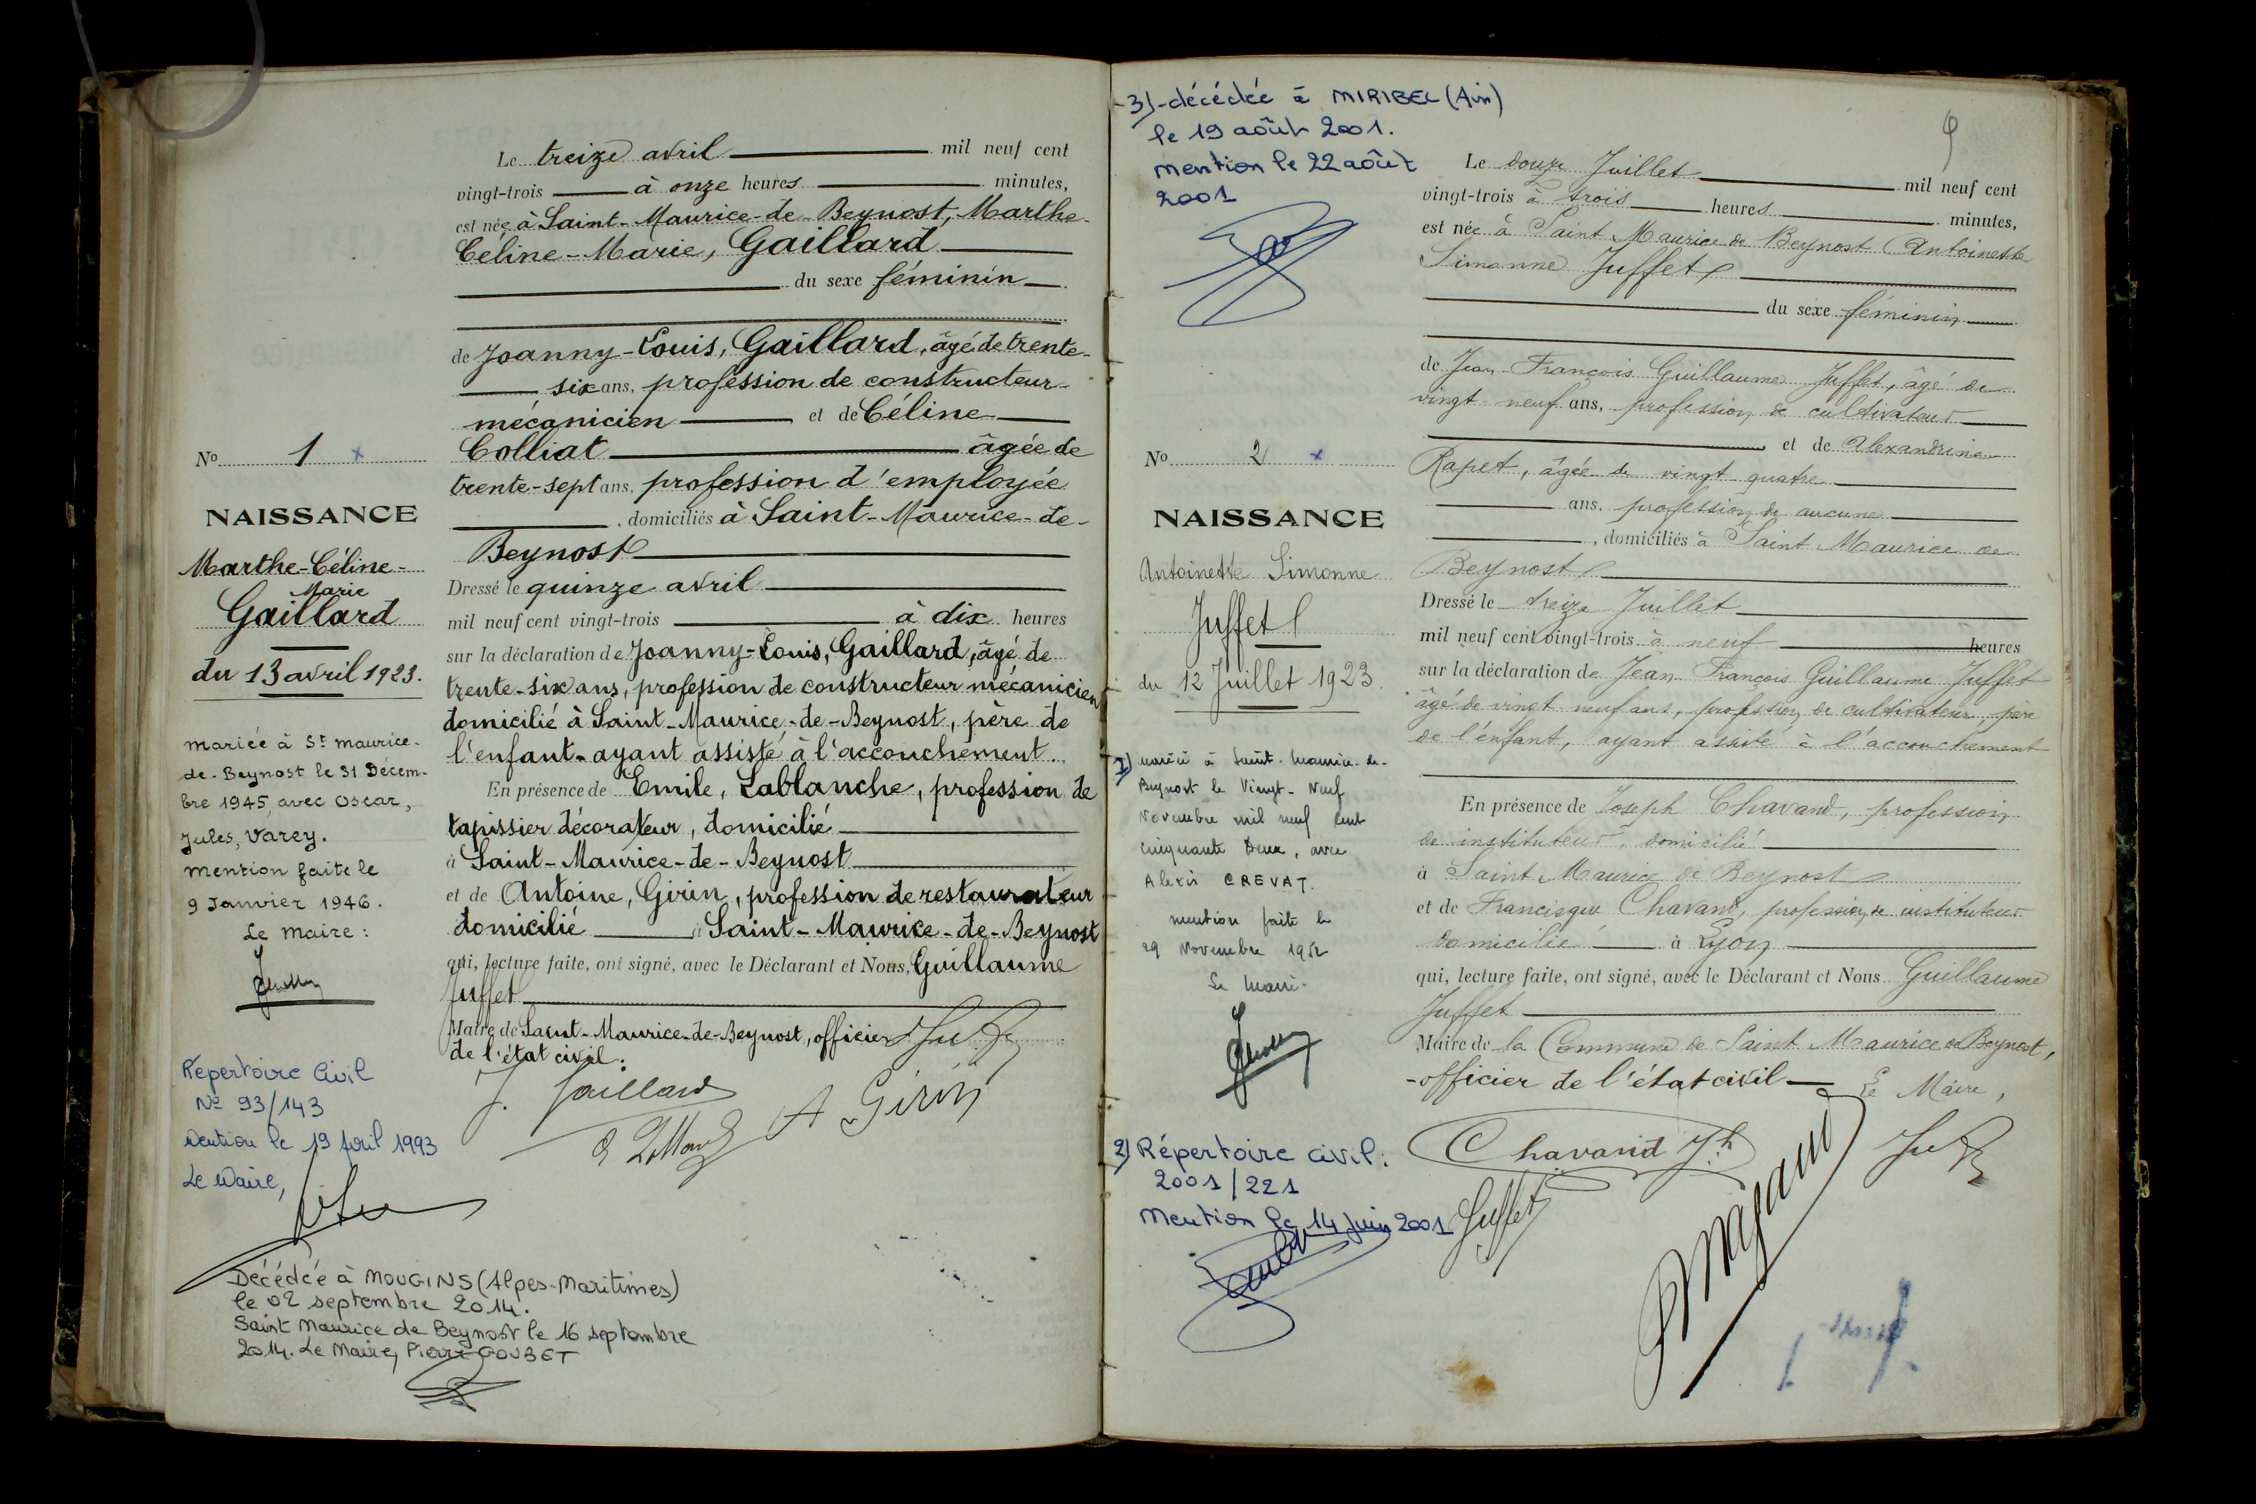 Le treize avril mil neuf cent
vingt-trois à onze heures minutes,
est née à Saint-Maurice-de-Beynost, Marthe-
Céline-Marie, Gaillard
du sexe féminin
de Joanny-Louis, Gaillard, âgé de trente-
six ans, profession de constructeur-
mécanicien et de Céline
Colliat âgée de
trente-sept ans, profession d'employée
, domiciliés à Saint-Maurice-de-
Beynost
Dressé le quinze avril
mil neuf cent vingt-trois à dix heures
sur la déclaration de Joanny-Louis, Gaillard, âgé de
trente-six ans, profession de constructeur mécanicien
domicilié à Saint-Maurice-de-Beynost, père de
l'enfant-ayant assisté à l'accouchement
En présence de Emile, Lablanche, profession de
tapissier décorateur, domicilié
à Saint-Maurice-de-Beynost
et de Antoine, Girin, profession de restaurateur
domicilié à Saint-Maurice-de-Beynost
qui, lecture faite, ont signé, avec le Déclarant et Nous, Guillaume
Juffet
Maire de Saint-Maurice-de-Beynost, officier
de l'état civil.
J. Gaillard
A Girin
No 1 x
NAISSANCE
Marthe-Céline-
Marie
Gaillard
du 13 avril 1923.
mariée à St maurice-
de-Beynost le 31 Décem-
bre 1945 avec Oscar,
Jules, Varey.
mention faite le
9 Janvier 1946.
Le maire :
Répertoire Civil
No 93/143
Mention le 19 Avril 1993
Le Maire,
Décédée à MOUGINS (Alpes-Maritimes)
le 02 septembre 2014.
Saint Maurice de Beynost le 16 septembre
2014. Le Maire, Pierre GOUBET
3)-décédée à MIRIBEL (Ain)
le 19 août 2001.
mention le 22 août
2001
No 2 x
NAISSANCE
Antoinette Simonne
Juffet
du 12 Juillet 1923
1) mariée à Saint-Maurice-de-
Beynost le Vingt-Neuf
Novembre mil neuf cent
cinquante Deux, avec
Alexis CREVAT.
mention faite le
29 Novembre 1952
Le Maire.
2) Répertoire civil :
2001/221
Mention le 14 juin 2001
9
Le douze Juillet mil neuf cent
vingt-trois à trois heures minutes,
est née à Saint Maurice de Beynost Antoinette
Simonne Juffet
du sexe féminin
de Jean François Guillaume Juffet, âgé de
vingt neuf ans, profession de cultivateur
et de Alexandrine
Rapet, âgée de vingt quatre
ans, profession de aucune
, domiciliés à Saint Maurice de
Beynost
Dressé le treize Juillet
mil neuf cent vingt-trois à neuf heures
sur la déclaration de Jean François Guillaume Juffet
âgé de vingt neuf ans, profession de cultivateur père
de l'enfant, ayant assisté à l'accouchement
En présence de Joseph Chavand, profession
de instituteur, domicilié
à Saint Maurice de Beynost
et de Francisque Chavant, profession de instituteur
domicilié à Lyon
qui, lecture faite, ont signé, avec le Déclarant et Nous Guillaume
Juffet
Maire de la Commune de Saint Maurice de Beynost,
-officier de l'état civil- Le Maire,
Chavand Jh
Juffet